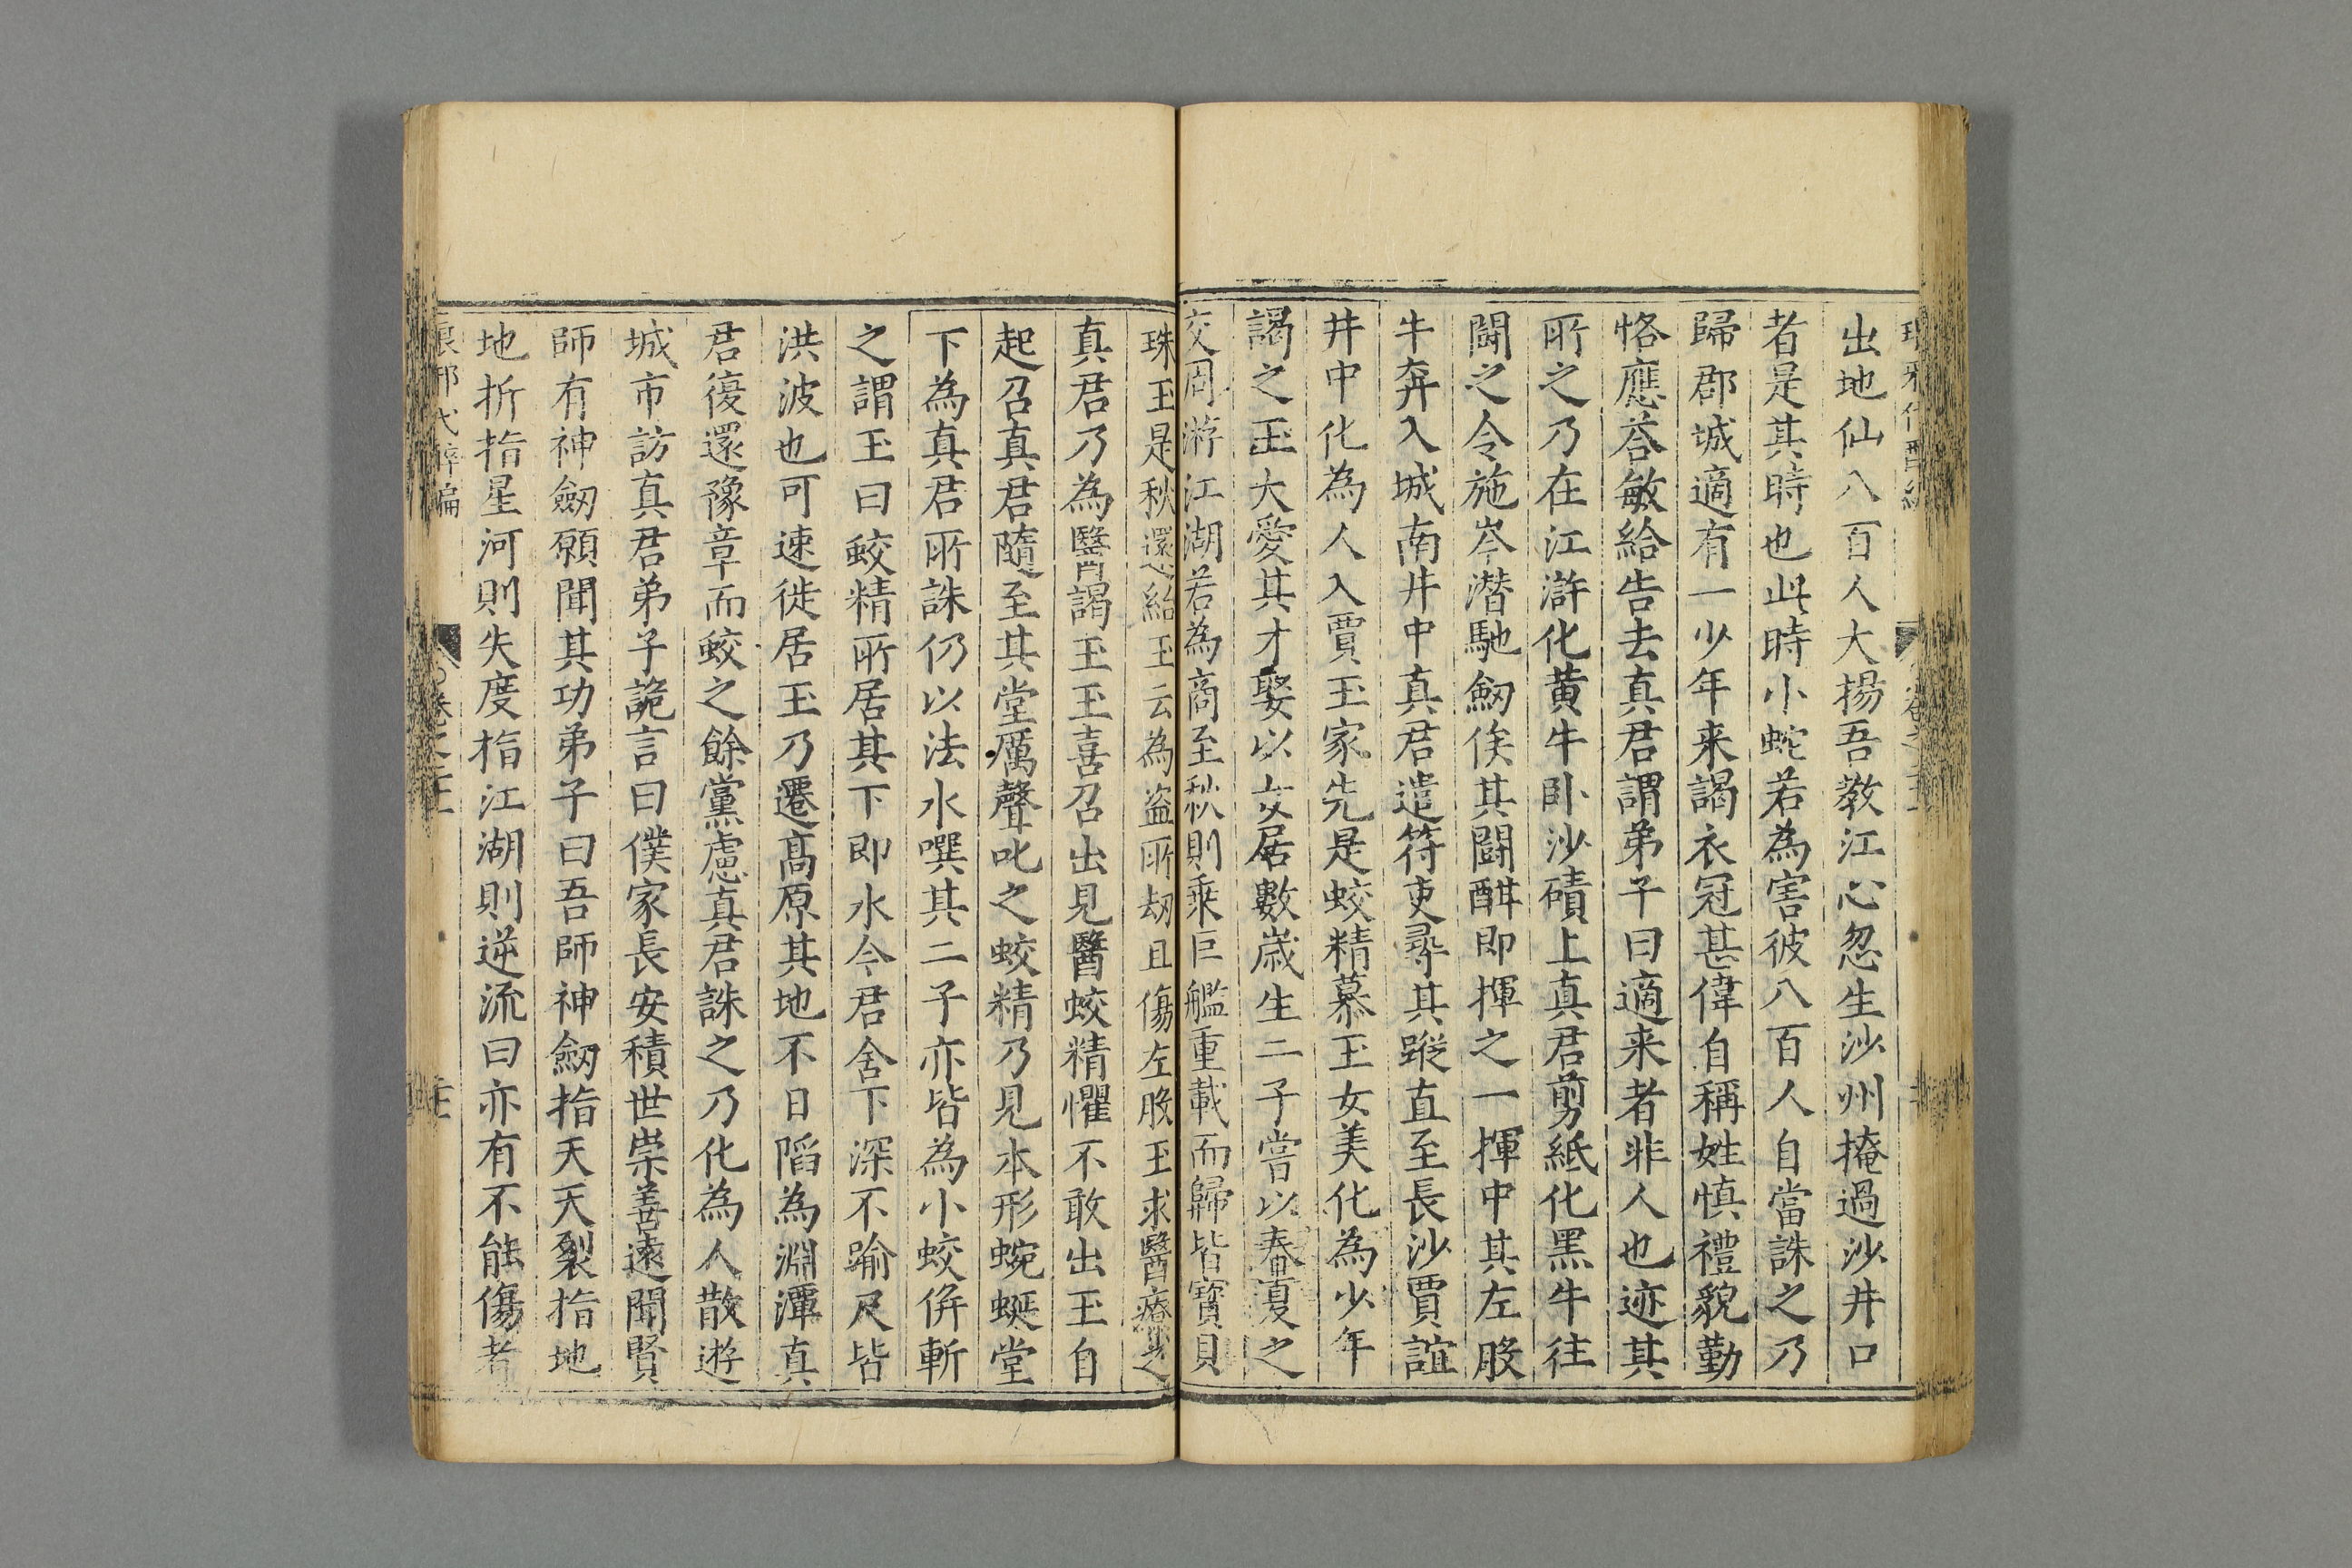 出地仙八百人大揚吾教江心忽生沙州掩過沙井口
者是其時也此時小蛇若為害彼八百人自當誅之乃
歸郡城適有一少年来謁衣冠甚偉自稱姓慎禮貌勤
恪應荅敏給告去真君謂弟子曰適来者非人也迹其
所之乃在江滸化黄牛卧沙磧上真君剪紙化黑牛往
鬪之令施岑潜馳劒俟其鬪酣即揮之一揮中其左股
牛奔入城南井中真君遣符吏尋其蹤直至長沙賈誼
井中化為人入賈玉家先是蛟精慕玉女美化為少年
謁之玉大愛其才娶以女居數歲生二子嘗以春夏之
交周游江湖若為商至秋則乗巨艦重載而歸皆寳貝
珠玉是秋還紿玉云為盗所刼且傷左股玉求醫療之
真君乃為醫謁玉玉喜召出見醫蛟精懼不敢出玉自
起召真君隨至其堂厲聲叱之蛟精乃見本形蜿蜒堂
下為真君所誅仍以法水噀其二子亦皆為小蛟併斬
之謂玉曰蛟精所居其下即水今君舍下深不踰尺皆
洪波也可速徙居玉乃遷髙原其地不日陷為淵潭真
君復還豫章而蛟之餘黨慮真君誅之乃化為人散遊
城市訪真君弟子詭言曰僕家長安積世崇善遠聞賢
師有神劒願聞其功弟子曰吾師神劒指天天裂指地
地折指星河則失度指江湖則逆流曰亦有不能傷者